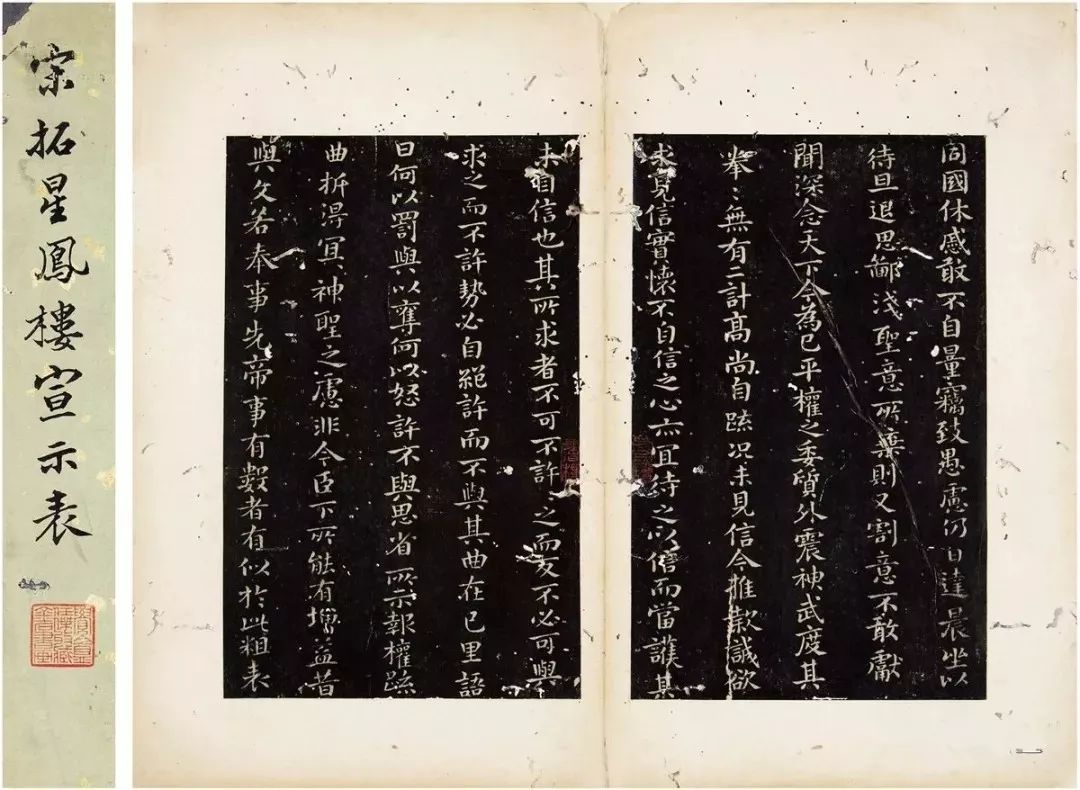 宋拓星鳳樓宣示表
同國休慼敢不自量竊致愚慮仍日達晨坐以
待旦退思鄙淺聖意所棄則又割意不敢獻
聞深念天下今為已平權之委質外震神武度其
拳〻無有二計高尚自疏況未見信今推款誠欲
求見信實懷不自信之心亦宜待之以信而當護其
未自信也其所求者不可不許〻之而反不必可與
求之而不許勢必自絕許而不與其曲在已里語
曰何以罰與以奪何以怒許不與思省所示報權疏
曲折得宜神聖之慮非今臣下所能有增益昔
與文若奉事先帝事有數者有似於此粗表